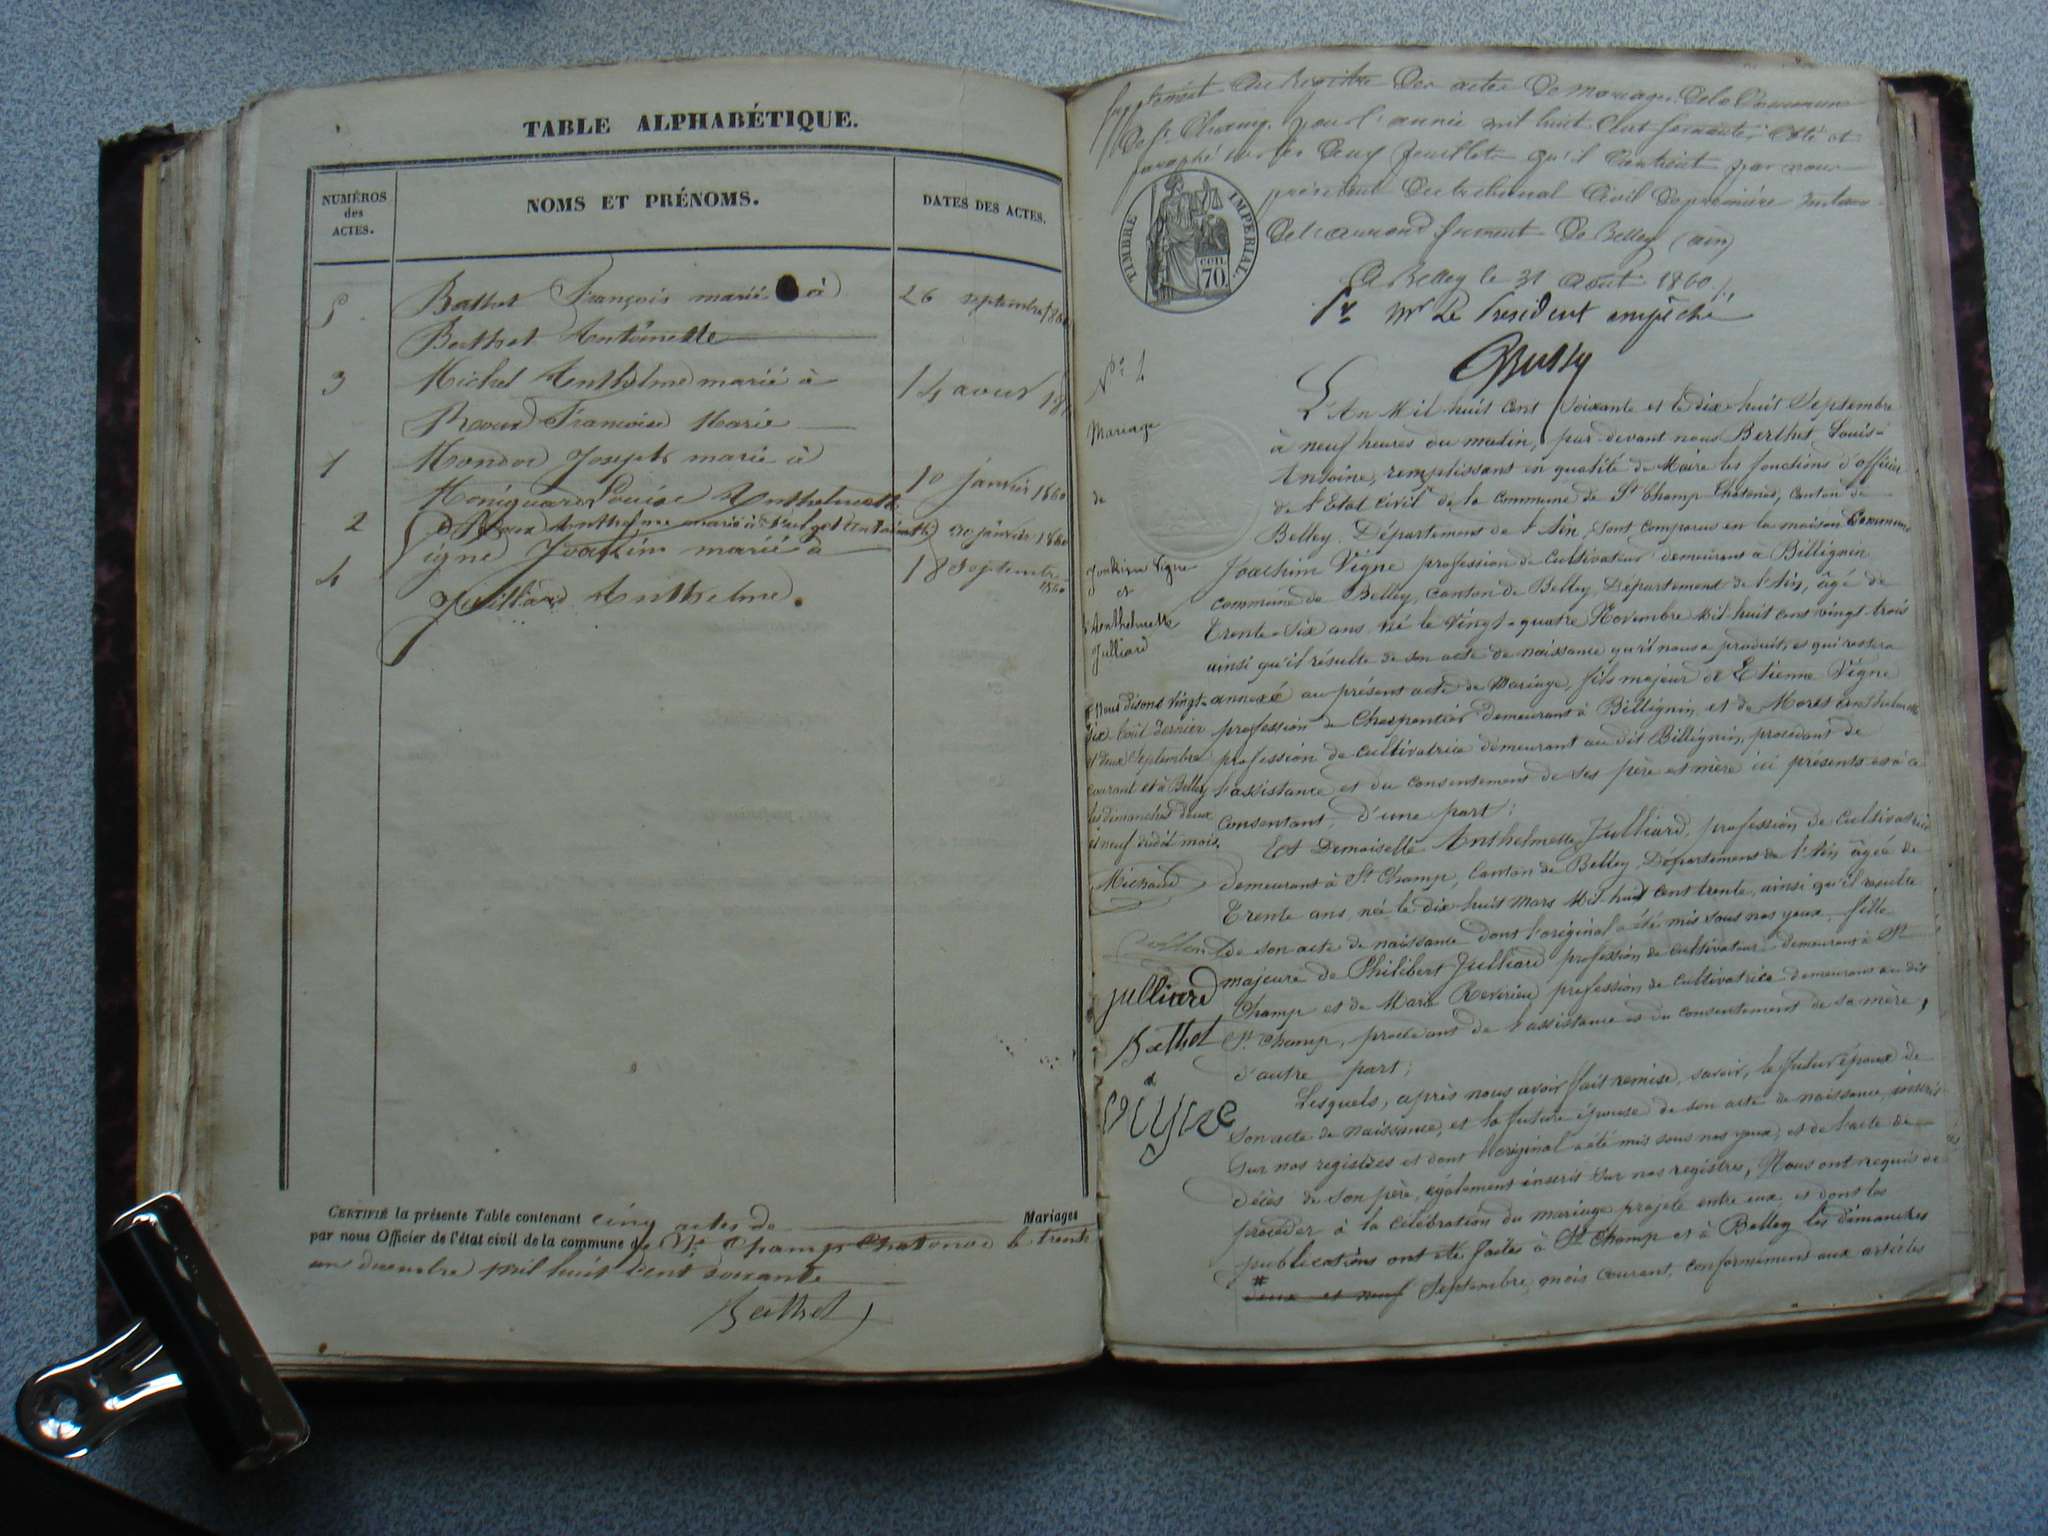 TABLE ALPHABÉTIQUE.
NUMÉROS des ACTES.
NOMS ET PRÉNOMS.
DATES DES ACTES.
5 Berthet François marié à 26 septembre 1860
Berthet Antoinette
3 Michel Anthelme marié à 14 aout
Roux Françoise Marie
1 Mondor Joseph marié à 10 janvier 1860
Louise Anthelmette
2 Roux Anthelme marié à 30 janvier 1860
4 Vigne Joachim marié à 18 Septembre 1860
Juilliard Anthelme.
CERTIFIÉ la présente Table contenant cinq actes de Mariages
par nous Officier de l'état civil de la commune de St Champ Chatonod le trente
un decembre mil huit cent soixante
Berthet
Supplément au Registre des actes de mariage de la Commune
de St Champ pour l'année mil huit cent soixante coté et
paraphé sur les deux feuillets qu'il contient par nous
président du tribunal Civil de première instance
de l'arrondissement de Belley (ain)
TIMBRE IMPERIAL.
CEN. 70.
A Belley le 31 Août 1860.
Pr Mr Le President empêché
No 4
Mariage
de
Joakim Vigne
et
Anthelmette
Julliard
L'An Mil huit cent soixante et le dix huit Septembre
à neuf heures du matin, par devant nous Berthet Louis-
Antoine, remplissant en qualité de Maire les fonctions d'officier
de l'Etat civil de la commune de St Champ Chatonod, canton de
Belley, Département de l'Ain, sont comparus en la maison Commune
Joachim Vigne profession de Cultivateur demeurant à Billignin
commune de Belley, canton de Belley, Département de l'Ain, âgé de
Trente-six ans, né le Vingt-quatre Novembre Mil huit cent vingt-trois
ainsi qu'il résulte de son acte de naissance qu'il nous a produit, et qui restera
annexé au présent acte de Mariage, fils majeur de Etienne Vigne
profession de Charpentier demeurant à Billignin, et de Moret Anthelmette
profession de cultivatrice demeurant au dit Billignin, procédant de
l'assistance et du consentement de ses père et mère ici présents et à ce
consentant, d'une part;
Et Demoiselle Anthelmette Julliard, profession de Cultivatrice
demeurant à St Champ, Canton de Belley, Département de l'Ain, âgée de
Trente ans, née le dix huit Mars Mil huit cent trente, ainsi qu'il résulte
de son acte de naissance dont l'original a été mis sous nos yeux, fille
majeure de Philibert Julliard profession de cultivateur demeurant à St
Champ et de Marie Reverieu profession de cultivatrice demeurant au dit
St Champ, procédant de l'assistance et du consentement de sa mère,
d'autre part;
Lesquels, après nous avoir fait remise, savoir, le futur époux de
son acte de naissance, et la future épouse de son acte de naissance, inscrit
sur nos registres et dont l'original a été mis sous nos yeux, et de l'acte de
décès de son père, également inscrit sur nos registres, Nous ont requis de
procéder à la célébration du mariage projeté entre eux, et dont les
publications ont été faites à St Champ et à Belley les dimanches
# deux et neuf Septembre, mois courant, conformément aux articles
# Nous disons vingt-
six Août dernier
et deux Septembre
courant et à Belley
les dimanches deux
et neuf dudit mois.
Michaud
julliard
Berthet
vigne